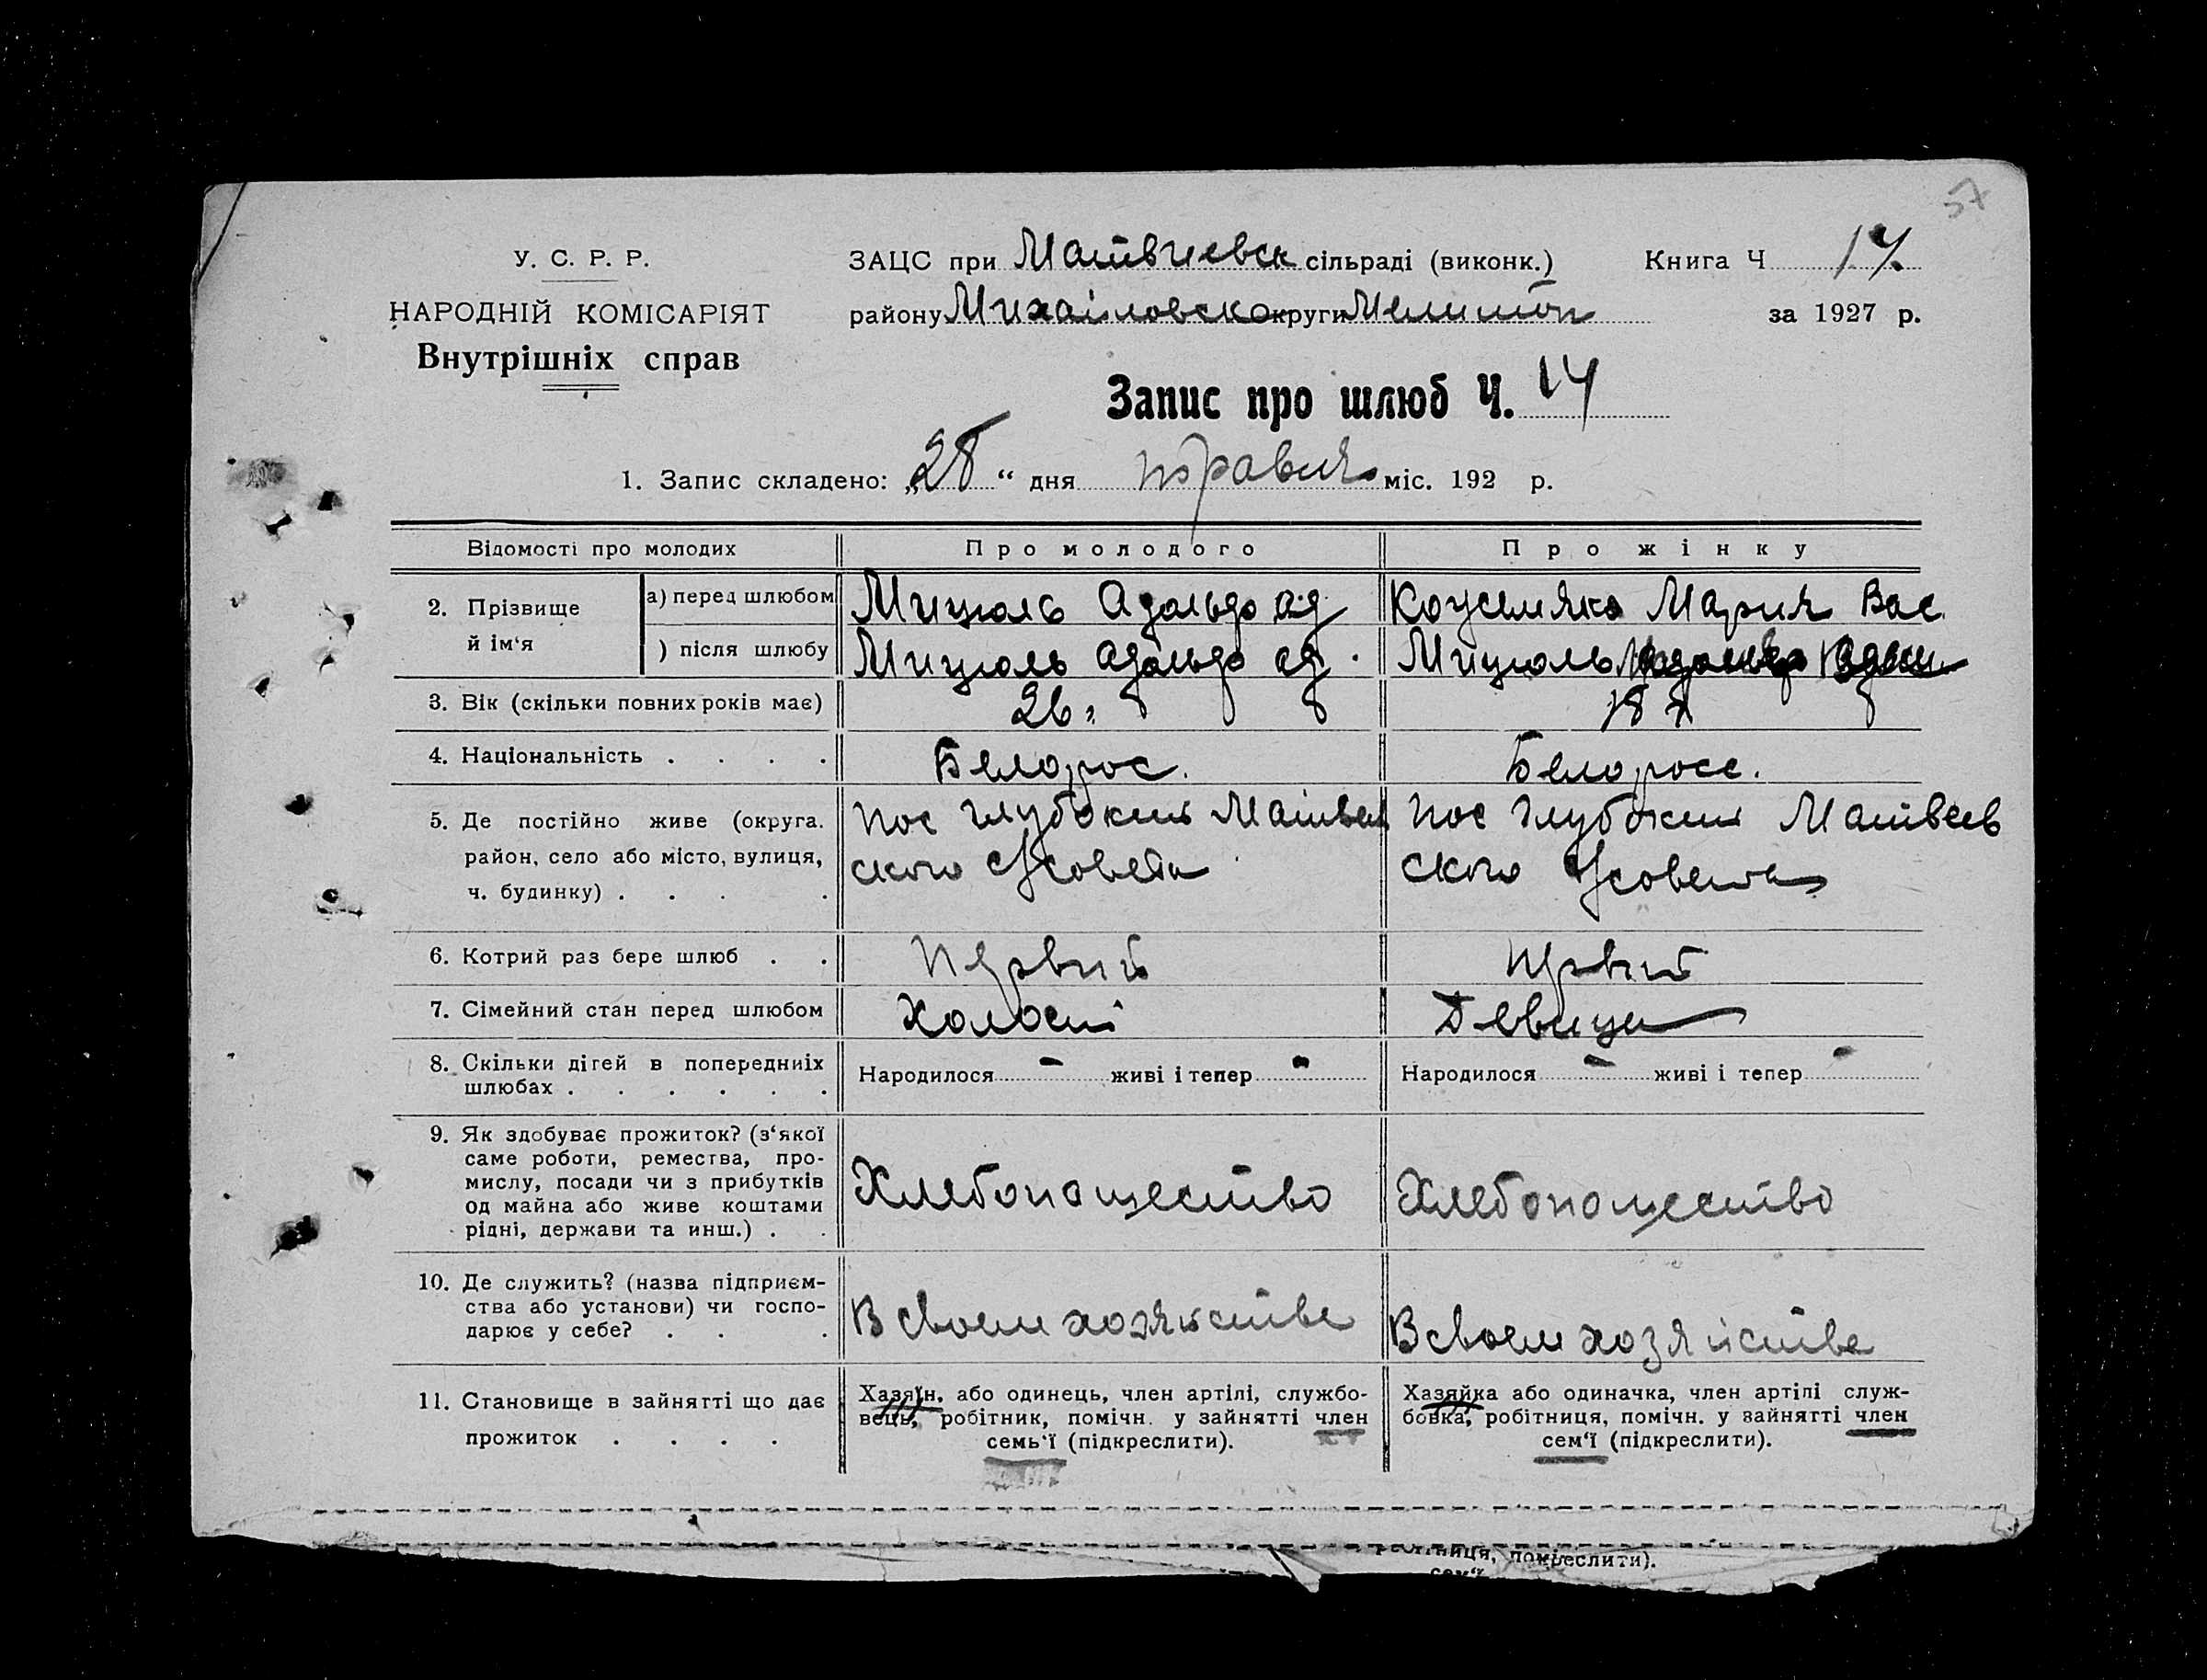 57
У. С. Р. Р.
НАРОДНІЙ КОМІСАРІЯТ
Внутрішніх справ
ЗАЦС при Матвиевск сільраді (виконк.) Книга Ч 14.
району Михайловск округи Мелитоп за 1927 р.
Запис про шлюб Ч. 14
1. Запис складено: „28“ дня травня міс. 192 р.
Відомості про молодих Про молодого Про жінку
2. Прізвище й ім‘я
а) перед шлюбом Мицюль Адольф Ад. Коуселяка Мария Вас.
) після шлюбу Мицюль Адольф Ад. Мицюль
3. Вік (скільки повних років має) 26 18 л
4. Національність . . . . Белорос. Белоросс.
5. Де постійно живе (округа. район, село або місто, вулиця, ч. будинку) . . . .
Пос Глубокий Матвеев
ского с/совета
Пос Глубокий Матвеев
ского с/совета
6. Котрий раз бере шлюб . . Первий Первий
7. Сімейний стан перед шлюбом Холост Девица
8. Скільки дітей в попередниіх шлюбах . . . . . .
Народилося - живі і тепер -
Народилося - живі і тепер -
9. Як здобуває прожиток? (з‘якої
саме роботи, ремества, про-
мислу, посади чи з прибутків
од майна або живе коштами
рідні, держави та инш.) . .
Хлебопащество
Хлебопащество
10. Де служить? (назва підприєм-
ства або установи) чи госпо-
дарює у себе? . . .
В своем хозяйстве
В своем хозяйстве
11. Становище в зайнятті що дає
прожиток . . . .
Хазяїн, або одинець, член артілі, службо-
вець, робітник, помічн. у зайнятті член
семь‘ї (підкреслити).
Хазяйка або одиначка, член артілі служ-
бовка, робітниця, помічн. у зайнятті член
сем‘ї (підкреслити).